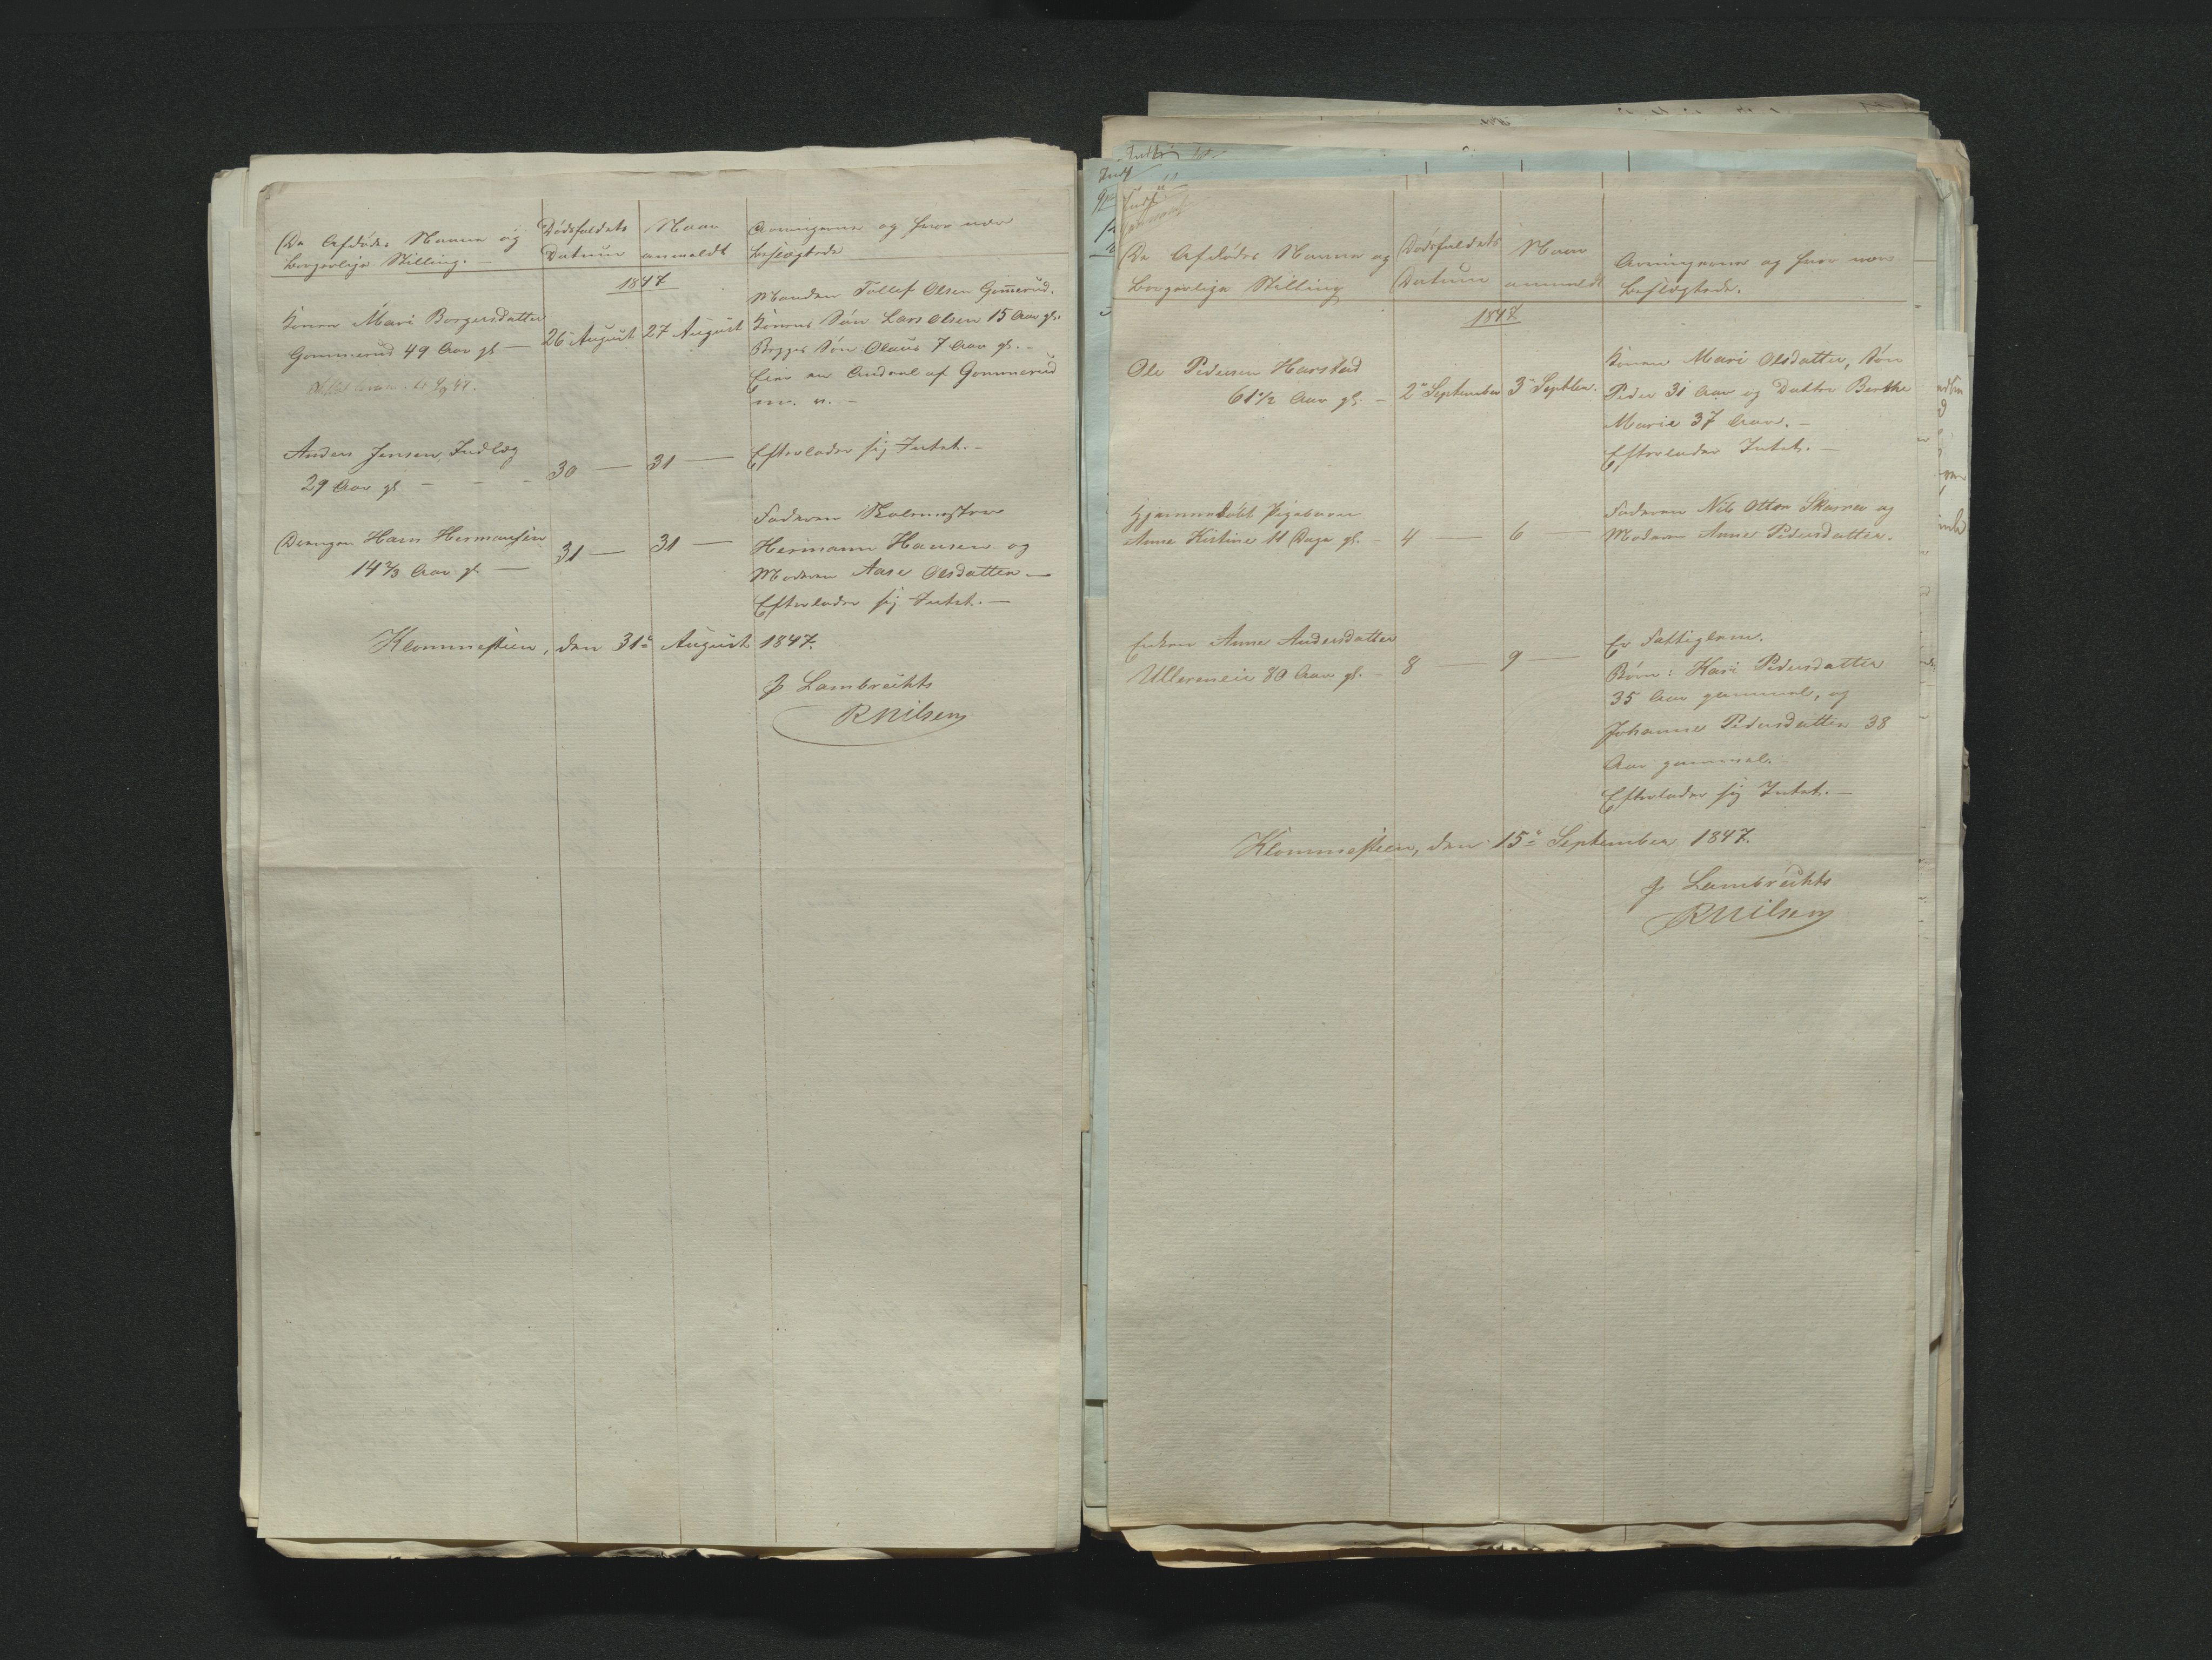 De Afdødes Navne og
borgerlige Stilling. —
Dødsfaldets
Datum
Naar
anmeldt
Arvingerne og hvor nær
beslægtede
1847
Konen Mari Borgersdatter
Gommerud 49 Aar gl —
26 August
27 August
Manden Tollef Olsen Gom̅erud.
Konens Søn Lars Olsen 15 Aar gl.
Begges Søn Olaus 7 Aar gl. —
Eier en Andeel af Gommerud
m. v. —
Anders Jensen, Indlæg
29 Aar gl — — —
30 —
31 —
Efterlader sig Intet. —
Drengen Hans Hermansen
14 2/3 Aar gl —
31 —
31 —
Faderen Skolemester
Hermann Hansen og
Moderen Aase Olsdatter —
Efterlader sig Intet. —
Klommesteen, den 31te August 1847.
J. Lambrechts
RNilsen
De Afdødes Navne og
borgerlige Stilling
Dødsfaldets
Datum
Naar
anmeldt
Arvingerne og hvor nær
beslægtede.
1847
Ole Pedersen Harstad
61 1/2 Aar gl. —
2 September
3 Septbr.
Konen Mari Olsdatter, Søn
Peder 31 Aar og Datter Berthe
Marie 37 Aar. —
Efterlader Intet. —
Hjemmedøbt Pigebarn
Anne Kistine 11 Dage gl. —
4 —
6 —
Faderen Nils Ottsen Skarren og
Moderen Anne Pedersdatter.
Enken Anne Andersdatter
Ullereneie 80 Aar gl. —
8 —
9 —
Er Fattiglem.
Børn: Kari Pedersdatter
35 Aar gammel, og
Johanne Pedersdatter 38
Aar gammel.
Efterlader sig Intet. —
Klommesteen, den 15de September 1847.
J. Lambrechts
RNilsen